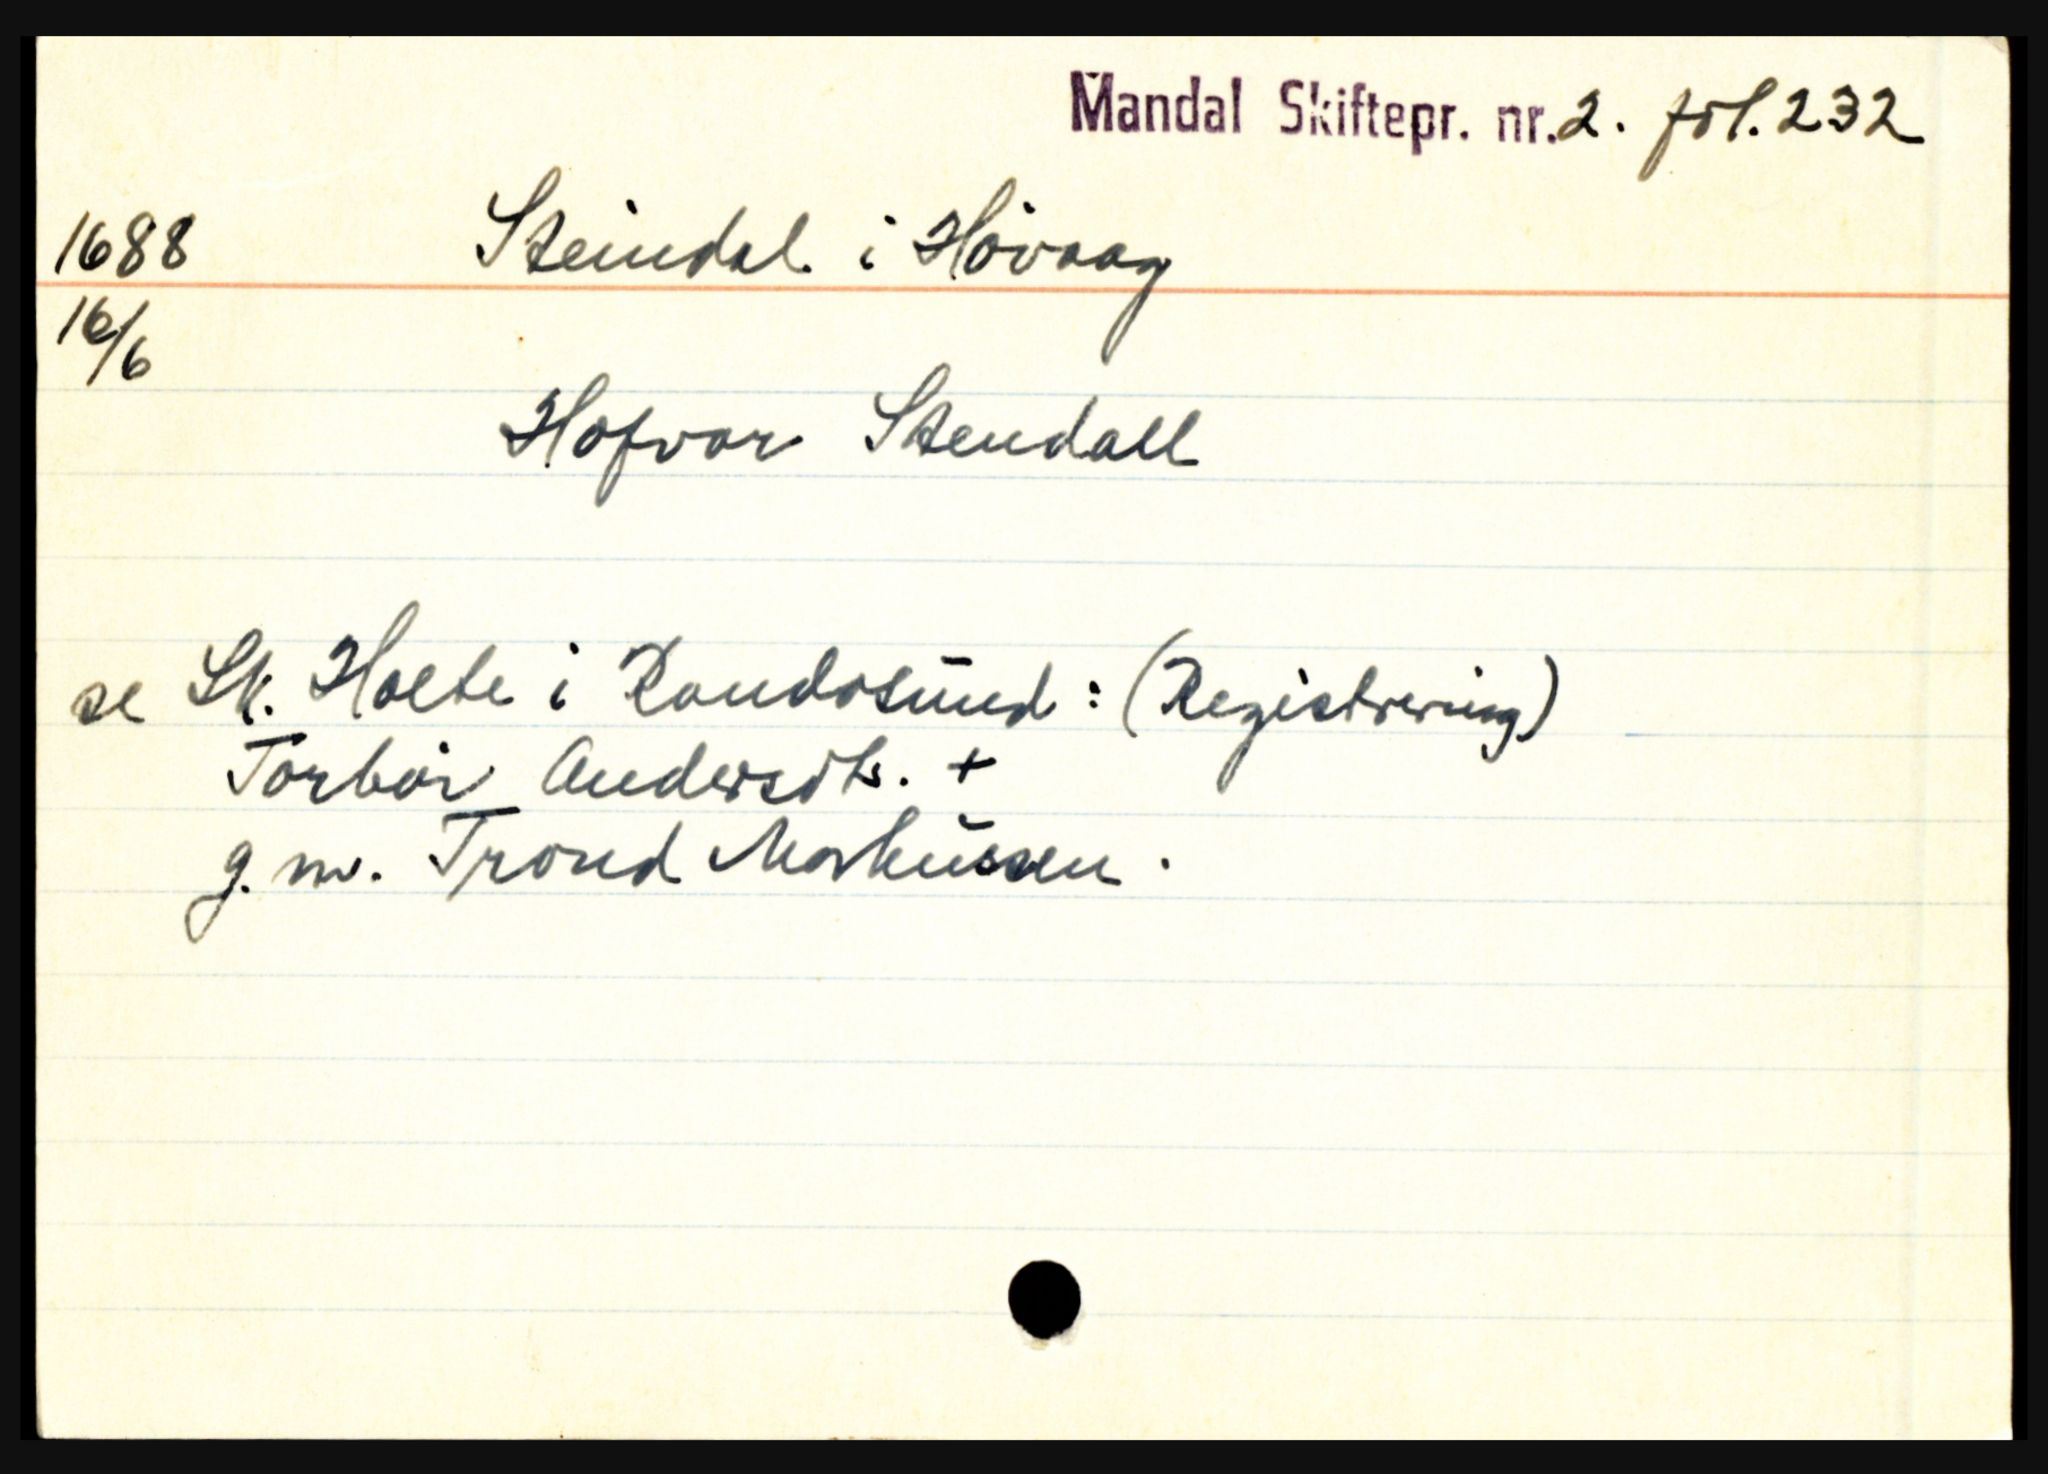 Mandal Skiftepr. nr. 2. fol. 232
1688 Steindal i Hövaag
16/6
Hofvar Stendall
se Sk. Holte i Randøsund: (Registrering)
Torbør Andersdtr. +
g. m. Trond Markussen.